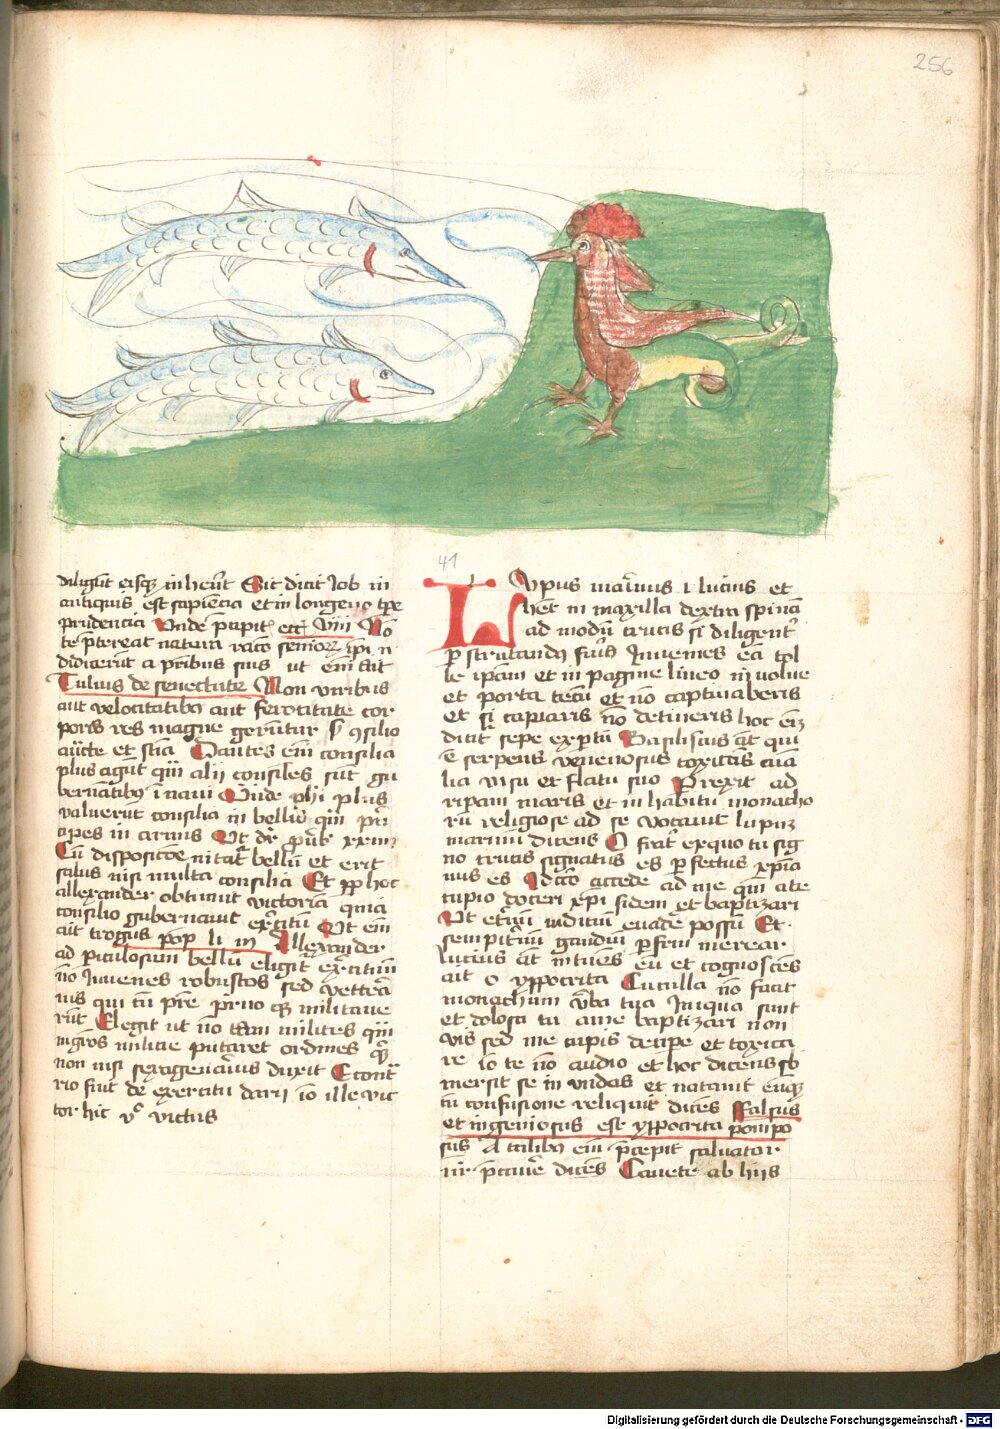 256
diligunt eisque inherent Sic dicit Job in
antiquis est sapiencia et in longevo tpe
prudencia Unde precipitur ecc VIII Non
te pretereat natura
didicerunt a pribus suis ut em ait
Tulius de senectute Non viribus
aut velocitatibus aut ferocitate cor
poris res magne geruntur consilio
aucte et scia Dantes em consilia
plus agunt qm alii consules sicut gu
bernatibus i navi Unde phi plus
valuerunt consilia in bellis qm prin
cipes in armis Ut dr prover XXIIII
Cum dispositoe initat bellum et erit
salus ubi multa consilia Et propter hoc
allexander obtinuit victoriam quia
consilio gubernavit exercitum Ut em
ait trogus pop li in Allexander
ad periculosum bellum eligens exercitum
no Juvenes robustos sed vettera
nos qui cum pre patruo que militave
runt Elegit ut no tam milites qm
migros milicie putaret ordines
non nisi sexagenarius duxit Econtra
rio fuit de exercitu darij io ille vic
tor hic vo victus
41
Lupus marinus i lucius et
het in maxilla dextra spinam
ad modum crucis si diligenter
perscrutandus fueris Invenies eam tol
le ipsam et in pagine lineo involve
et porta tecum et no captivaberis
et si capiaris no detineris hoc eiz
dicit sepe expertum Basiliscus aut qui
e serpens venenosus toxicans cuncta
lia visu et flatu suo Prexit ad
ripam maris et in habitu monacho
rum religiose ad se vocavit lupum
marinum dicens O frater exquo tu sig
no crucis signatus es perfectus xpia
nus es Idcirco accede ad me qm a te
cupio doceri xpi fidem et baptizari
Ut eternum iudicium evade possum Et
sempiternum gaudium perfrui merear
Lucius aut intuens eum et cognoscens
ait o yppocrita Cuculla no facit
monachum verba tua Iniqua sunt
et dolosa tu a me baptizari non
vis sed me cupis decipe et toxica
re io te no audio et hoc dicens sb
mersit se in undas et natavit eumque
cum confusione reliquit dicens Falsus
et ingeniosus est yppocrita pompo
sus A talibus em precepit salvator
nr precavere dicens Cavete ab hiis
Digitalisierung gefördert durch die Deutsche Forschungsgemeinschaft - DFG